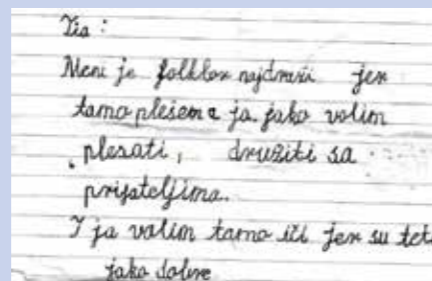 Tia:
Meni je folklor najdraži jer
tamo plešema ja jako volim
plesati, družiti sa
prijateljima.
I ja volim tamo ići jer su tet
jako dobre